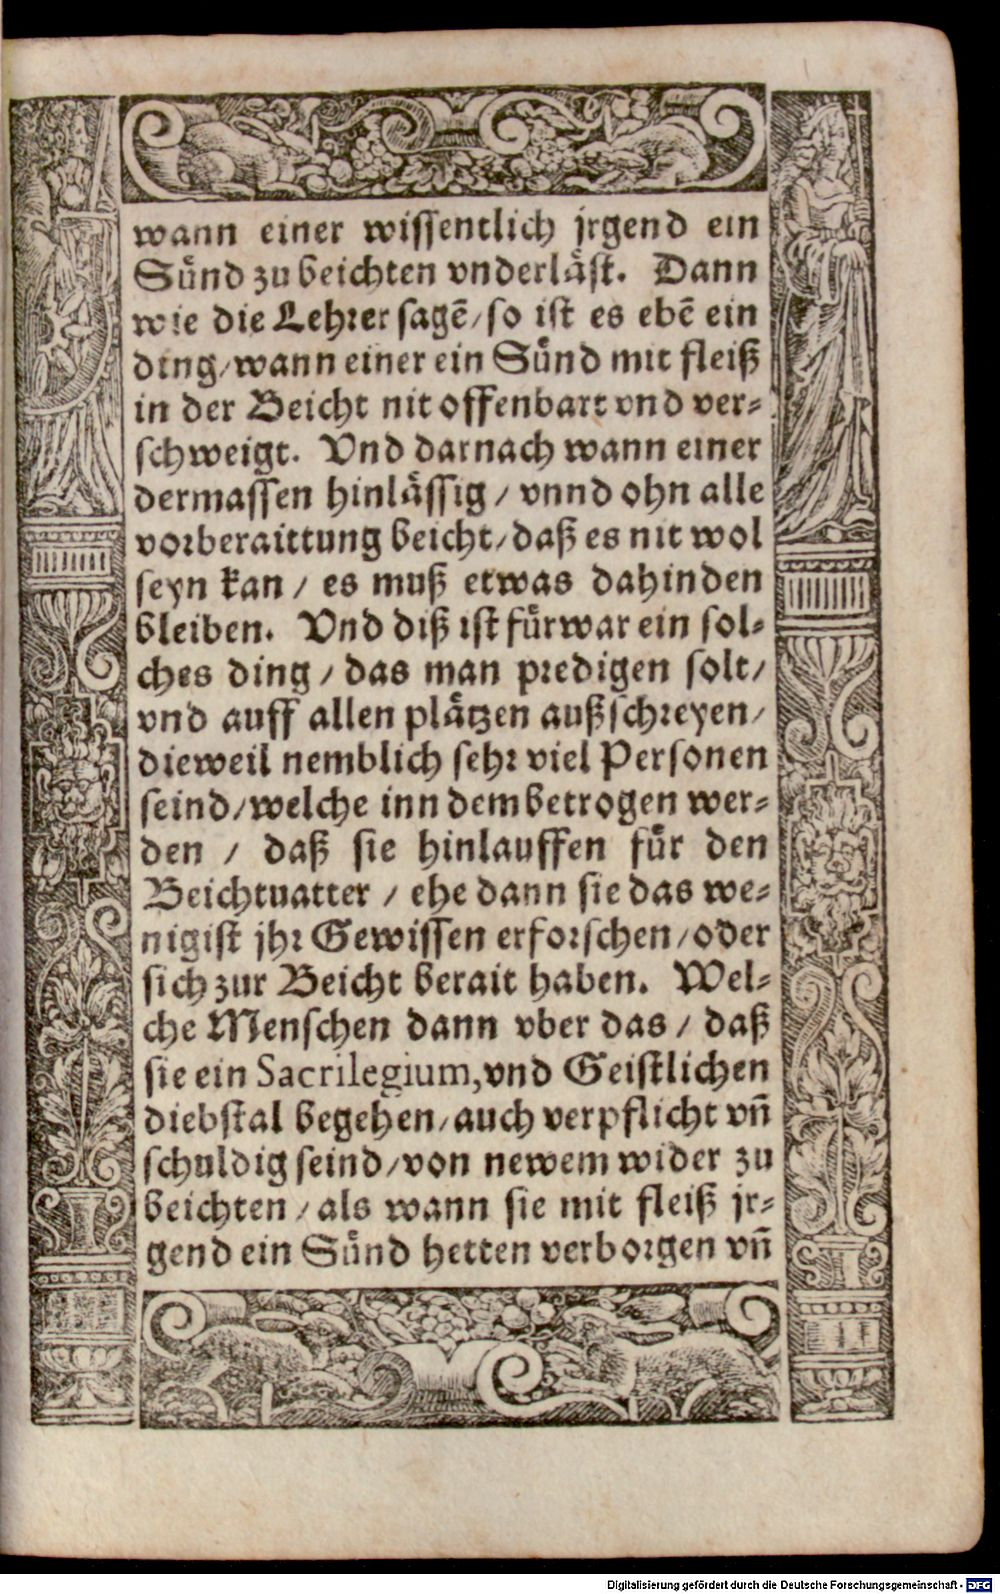 wann einer wissentlich jrgend ein
Sünd zu beichten vnderläst. Dann
wie die Lehrer sagē/so ist es ebē ein
ding/wann einer ein Sünd mit fleiß
in der Beicht nit offenbart vnd ver-
schweigt. Vnd darnach wann einer
dermassen hinlässig/ vnnd ohn alle
vorberaittung beicht/daß es nit wol
seyn kan/ es muß etwas dahinden
bleiben. Vnd diß ist fürwar ein sol-
ches ding/ das man predigen solt/
vnd auff allen plätzen außschreyen/
dieweil nemblich sehr viel Personen
seind/welche inn dem betrogen wer-
den / daß sie hinlauffen für den
Beichtuatter / ehe dann sie das we-
nigist jhr Gewissen erforschen/oder
sich zur Beicht berait haben. Wel-
che Menschen dann vber das/ daß
sie ein Sacrilegium,vnd Geistlichen
diebstal begehen/auch verpflicht vn̄
schuldig seind/von newem wider zu
beichten/als wann sie mit fleiß jr-
gend ein Sünd hetten verborgen vn̄
Digitalisierung gefördert durch die Deutsche Forschungsgemeinschaft - DFG